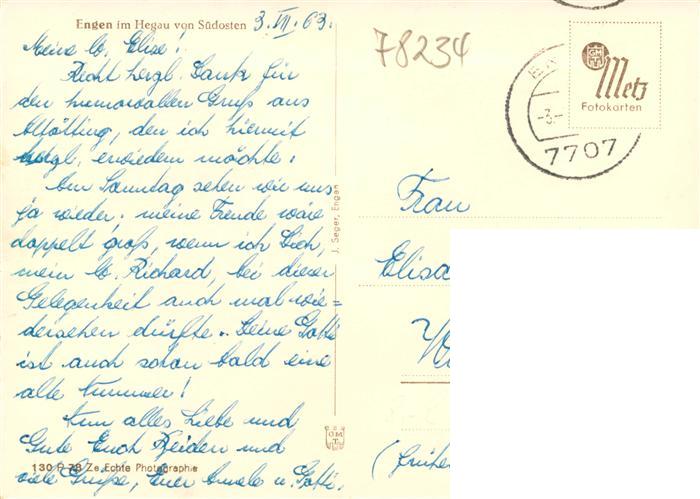 Engen im Hegau von Südosten 3. VII. 63.
Meine lb. Elise!
Recht herzl. Dank für
den humorvollen Gruß aus
Altötting, den ich hiermit
herzl. erwiedern möchte.
Am Sonntag sehen wir uns
ja wieder. meine Freude wäre
doppelt groß, wenn ich Dich,
mein lb. Richard, bei dieser
Gelegenheit auch mal wie=
dersehen dürfte. Deine Gotti
ist auch schon bald eine
alte Nummer!
Nun alles Liebe und
Gute Euch Beiden und
130 P 78 Ze Echte Photographie
viele Grüße, Euer u. Gotti.
J. Seger, Engen
GM
T.
78234
GM
T
Metz
Fotokarten
EN
-3.-
7707
Frau
Elisa
W
(früher